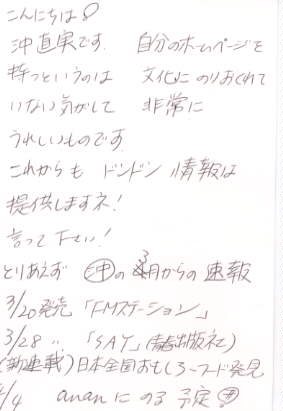 こんにちは
沖直実です。 自分のホームページを
持つというのは 文化にのりおくれて
いない気がして 非常に
うれしいものです。
これからも ドンドン 情報は
提供しますネ!
言って下さい!
とりあえず ㊥の3月からの速報
3/20発売「FMステーション」
3/28 〃 「SAY」(青春出版社)
(新連載)日本全国おもしろフード発見
4/4 ananにのる予定